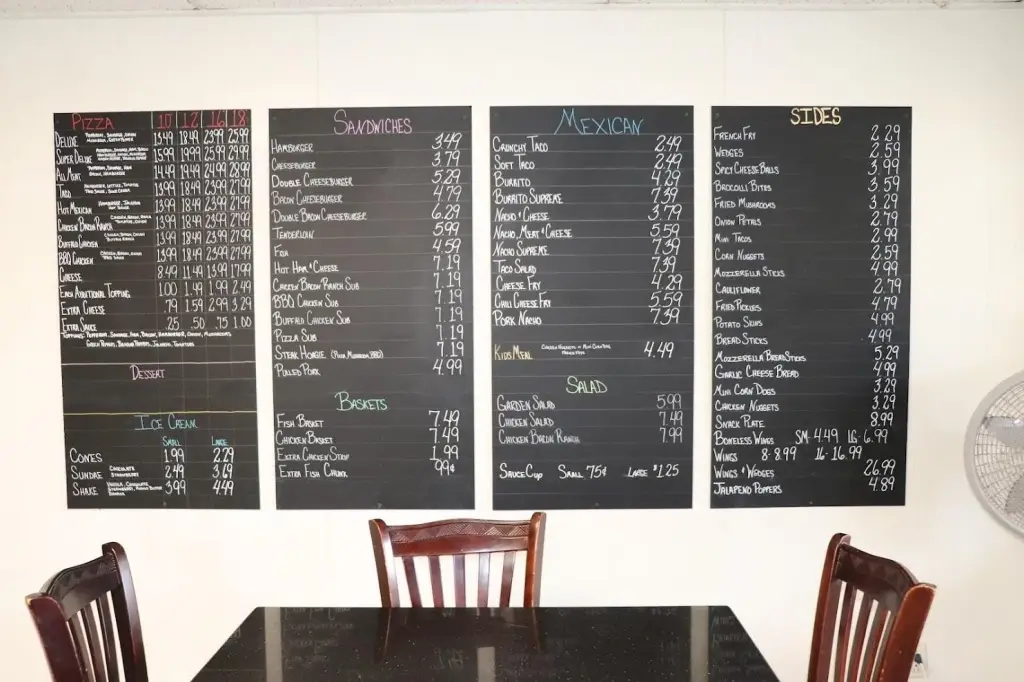 PIZZA 10 12 16 18
DELUXE 13.49 18.49 23.99 25.99
SUPER DELUXE 15.99 19.99 25.99 29.99
ALL MEAT 14.49 19.49 24.99 28.99
TACO 13.99 18.49 23.99 27.99
HOT MEXICAN 13.99 18.49 23.99 27.99
CHICKEN BACON RANCH 13.99 18.49 23.99 27.99
BUFFALO CHICKEN 13.99 18.49 23.99 27.99
BBQ CHICKEN 13.99 18.49 23.99 27.99
CHEESE 8.49 11.49 13.99 17.99
EACH ADDITIONAL TOPPING 1.00 1.49 1.99 2.49
EXTRA CHEESE .79 1.59 2.99 3.29
EXTRA SAUCE .25 .50 .75 1.00
TOPPINGS: PEPPERONI, SAUSAGE, HAM, BACON, HAMBURGER, ONION, MUSHROOMS,
GREEN PEPPERS, BANANA PEPPERS, JALAPENO, TOMATOES
DESSERT
ICE CREAM
SMALL LARGE
CONES 1.99 2.29
SUNDAE CHOCOLATE STRAWBERRY 2.49 3.69
SHAKE VANILLA, CHOCOLATE 3.99 4.49
SANDWICHES
HAMBURGER 3.49
CHEESEBURGER 3.79
DOUBLE CHEESEBURGER 5.29
BACON CHEESEBURGER 4.79
DOUBLE BACON CHEESEBURGER 6.29
TENDERLOIN 5.99
FISH 4.59
HOT HAM & CHEESE 7.19
CHICKEN BACON RANCH SUB 7.19
BBQ CHICKEN SUB 7.19
BUFFALO CHICKEN SUB 7.19
PIZZA SUB 7.19
STEAK HOAGIE (PIZZA, MUSHROOM, BBQ) 7.19
PULLED PORK 4.99
BASKETS
FISH BASKET 7.49
CHICKEN BASKET 7.49
EXTRA CHICKEN STRIP 1.99
EXTRA FISH CHUNK 99¢
MEXICAN
CRUNCHY TACO 2.49
SOFT TACO 2.49
BURRITO 4.29
BURRITO SUPREME 7.39
NACHO & CHEESE 3.79
NACHO, MEAT & CHEESE 5.59
NACHO SUPREME 7.39
TACO SALAD 7.39
CHEESE FRY 4.29
CHILI CHEESE FRY 5.59
PORK NACHO 7.39
KIDS MEAL CHICKEN NUGGETS OR MINI CORN DOG 4.49
SALAD
GARDEN SALAD 5.99
CHICKEN SALAD 7.49
CHICKEN BACON RANCH 7.99
SAUCE CUP SMALL 75¢ LARGE $1.25
SIDES
FRENCH FRY 2.29
WEDGES 2.59
SPICY CHEESE BALLS 3.99
BROCOLLI BITES 3.59
FRIED MUSHROOMS 3.29
ONION PETALS 2.79
MINI TACOS 2.99
CORN NUGGETS 2.59
MOZZERELLA STICKS 4.99
CAULIFLOWER 2.79
FRIED PICKLES 4.79
POTATO SKINS 4.99
BREAD STICKS 4.99
MOZZERELLA BREADSTICKS 5.29
GARLIC CHEESE BREAD 4.99
MINI CORN DOGS 3.29
CHICKEN NUGGETS 3.29
SNACK PLATE 8.99
BONELESS WINGS SM: 4.49 LG: 6.99
WINGS 8-8.99 16-16.99
WINGS & WEDGES 26.99
JALAPENO POPPERS 4.89